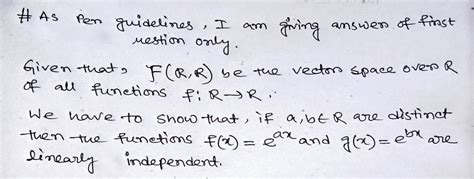 # As Per guidelines, I am giving answer of first
uestion only.
Given that, F(R,R) be the vector space over R
of all functions f: R→R.
We have to show that, if a,b∈R are distinct
then the functions f(x) = e^{ax} and g(x) = e^{bx} are
linearly independent.